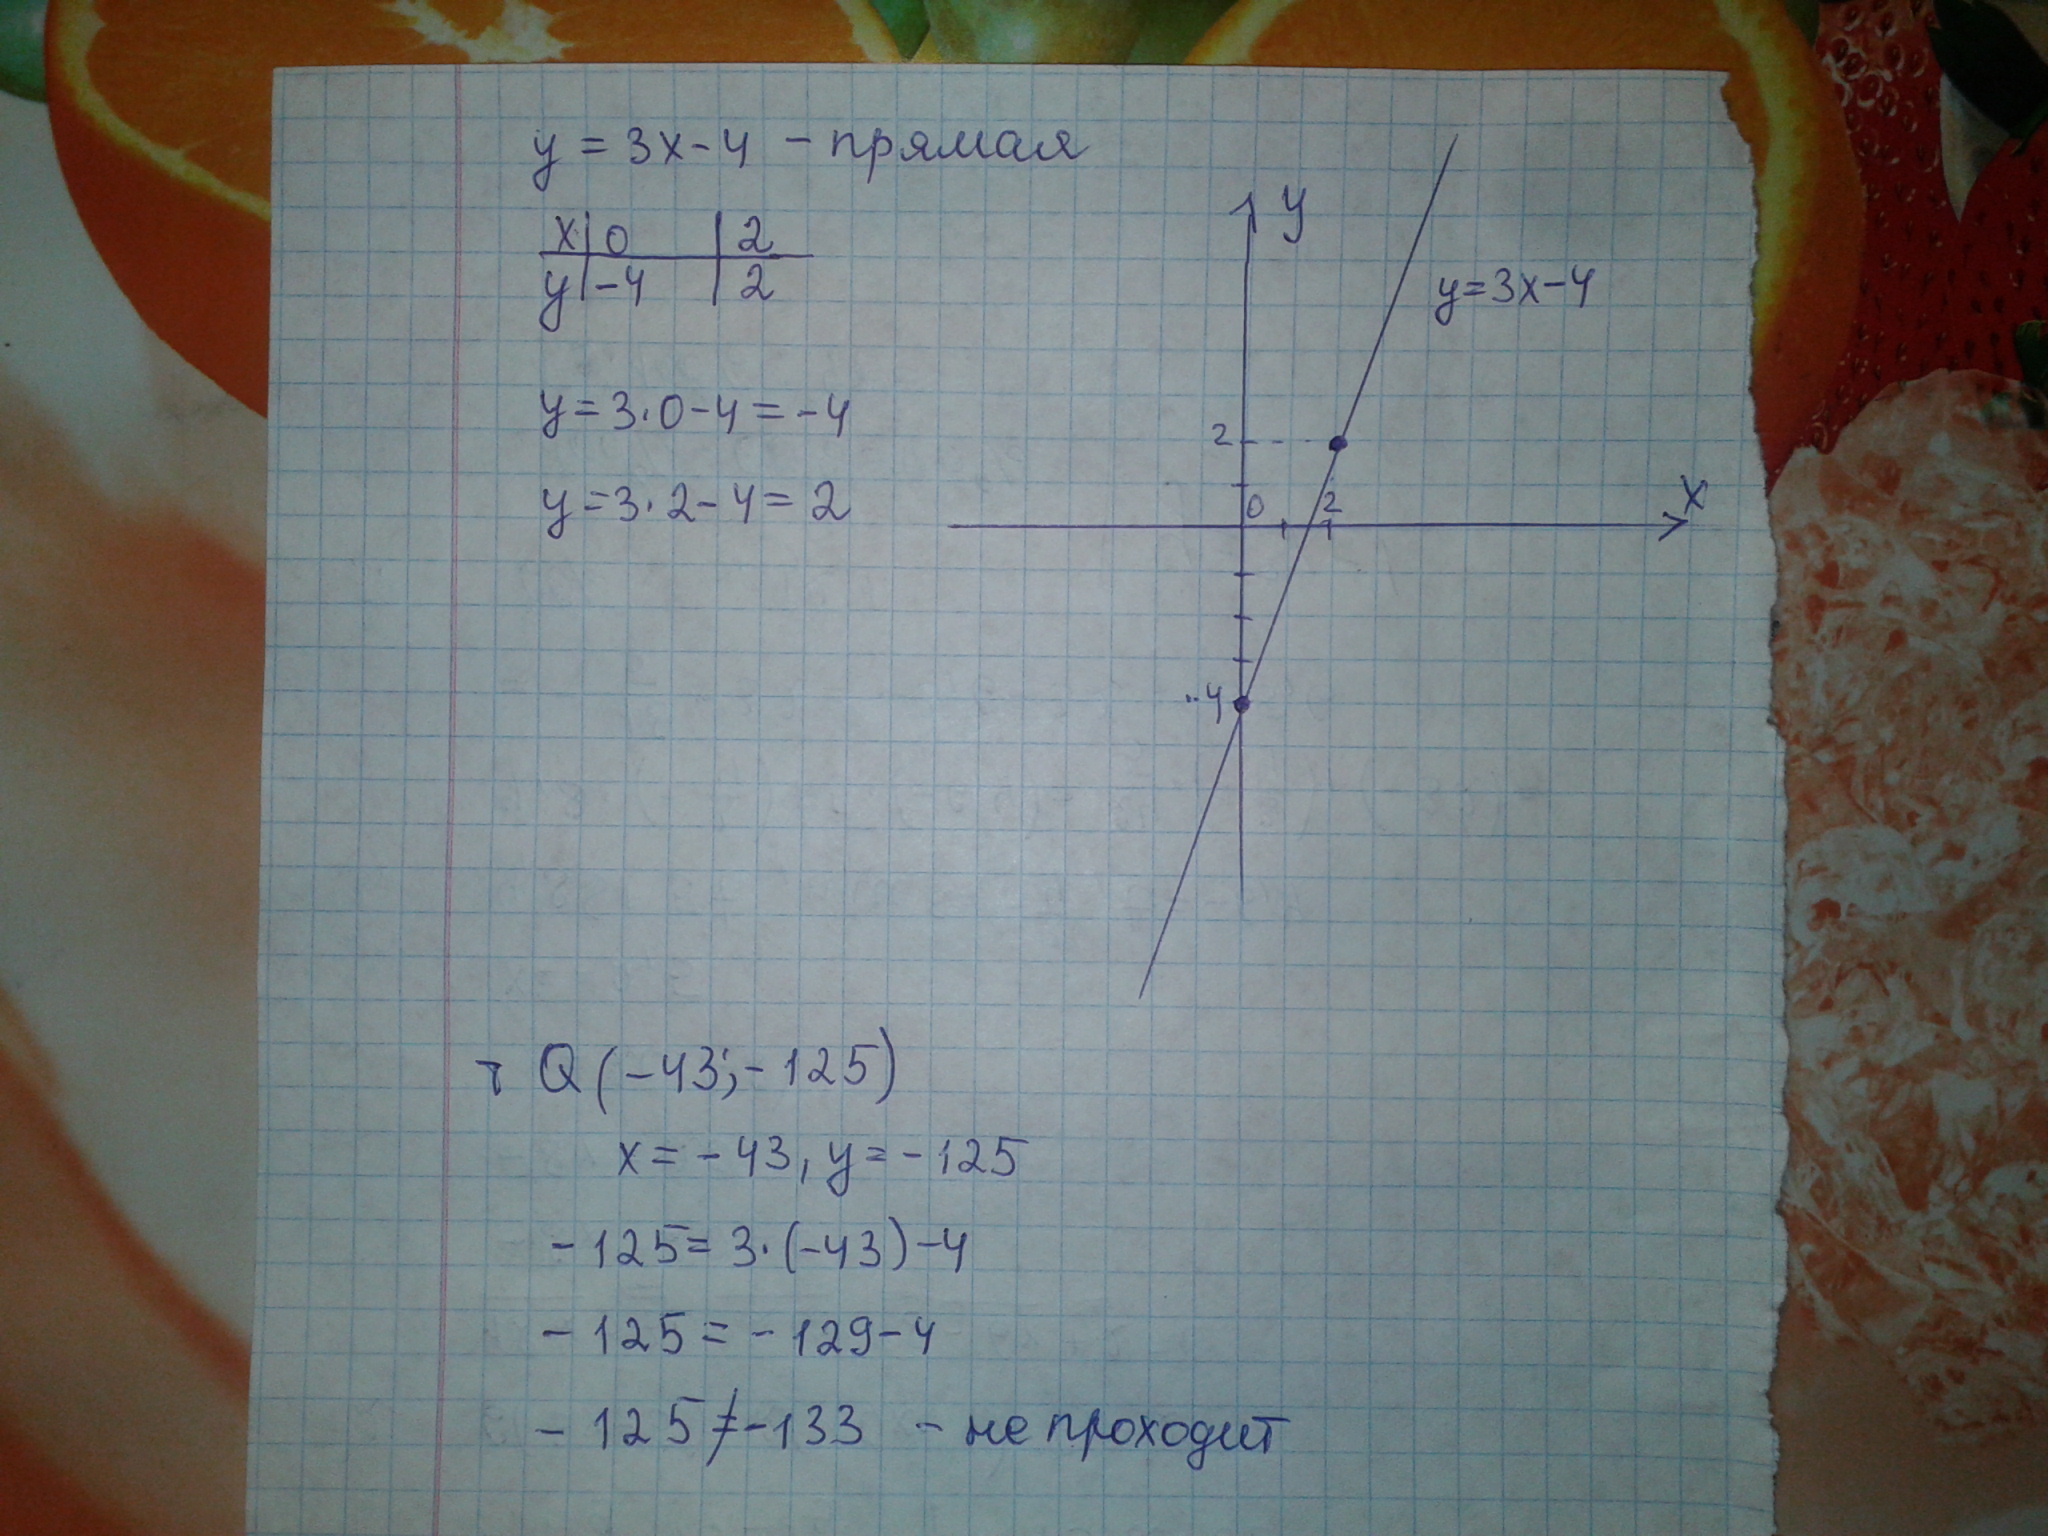 y = 3x - 4 - прямая
x | 0 | 2
y | -4 | 2
y = 3·0 - 4 = -4
y = 3·2 - 4 = 2
y
y = 3x - 4
2
0
2
x
-4
т Q (-43; -125)
x = -43, y = -125
-125 = 3·(-43) - 4
-125 = -129 - 4
-125 ≠ -133 - не проходит